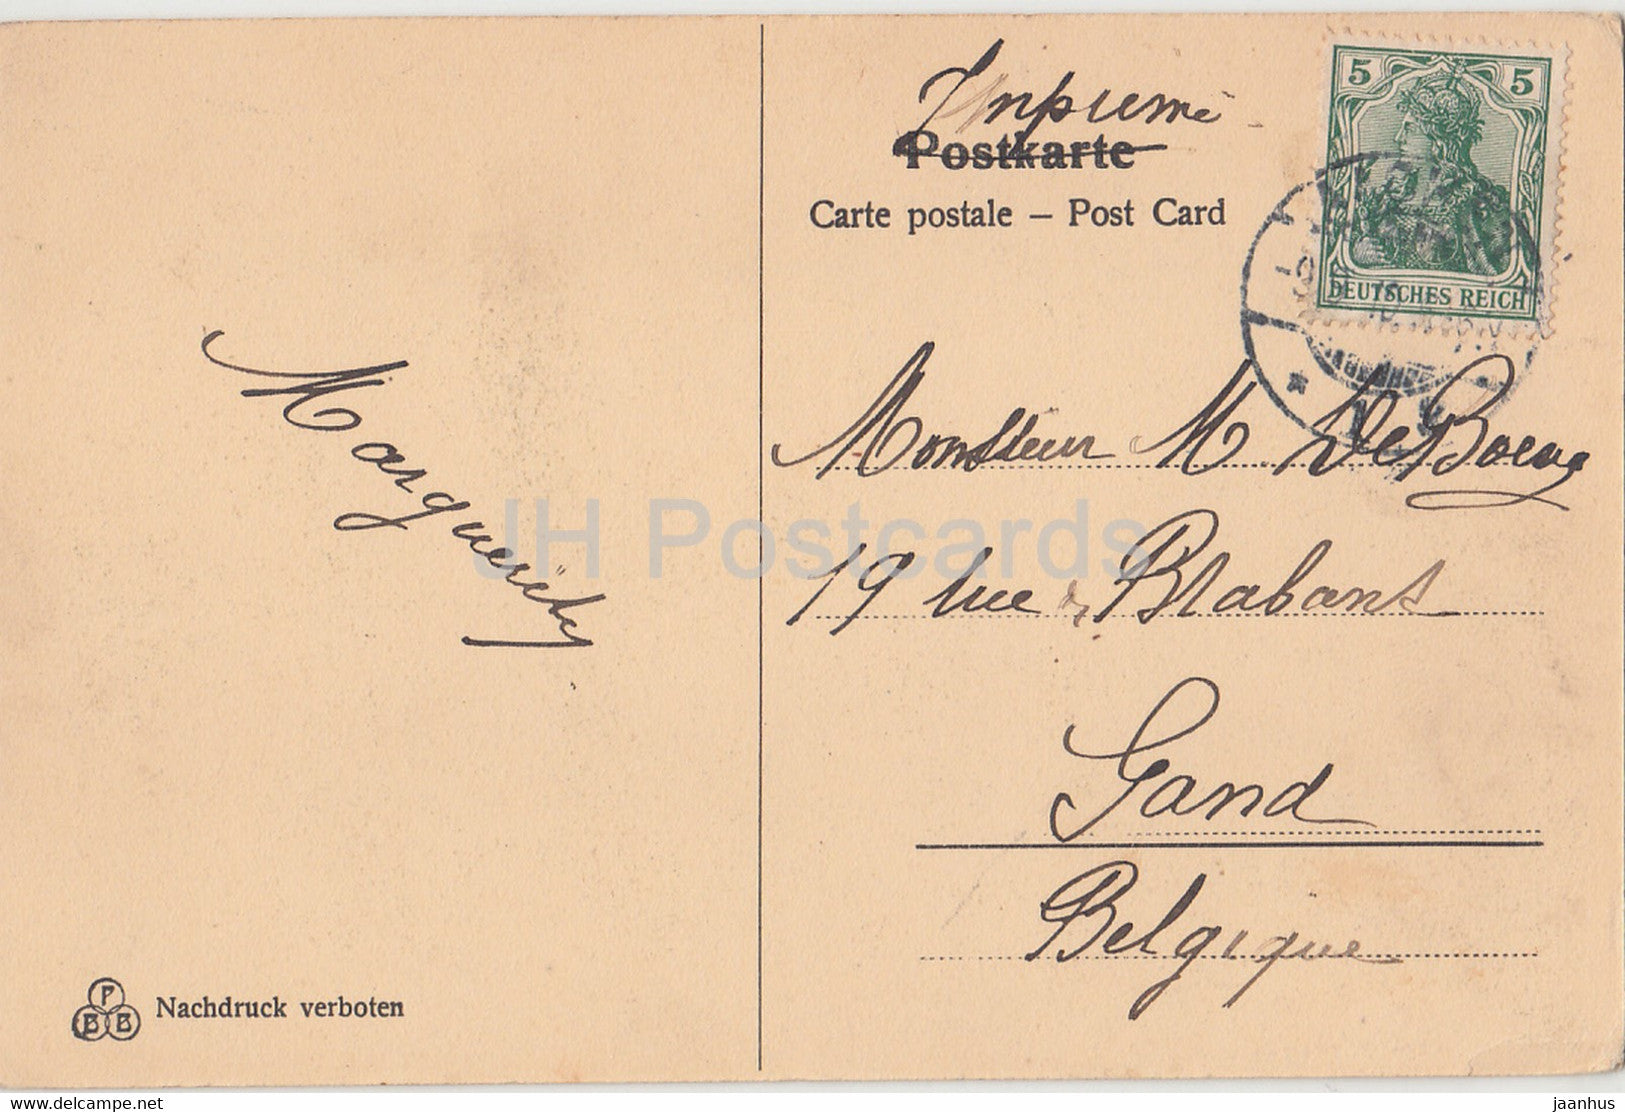 Imprimé
Postkarte
Carte postale – Post Card
5 5
DEUTSCHES REICH
Monsieur M. De Boeve
19 rue Brabant
Gand
Belgique
Marguerite
P
B B
Nachdruck verboten
JH Postcards
delcampe.net
jaanhus